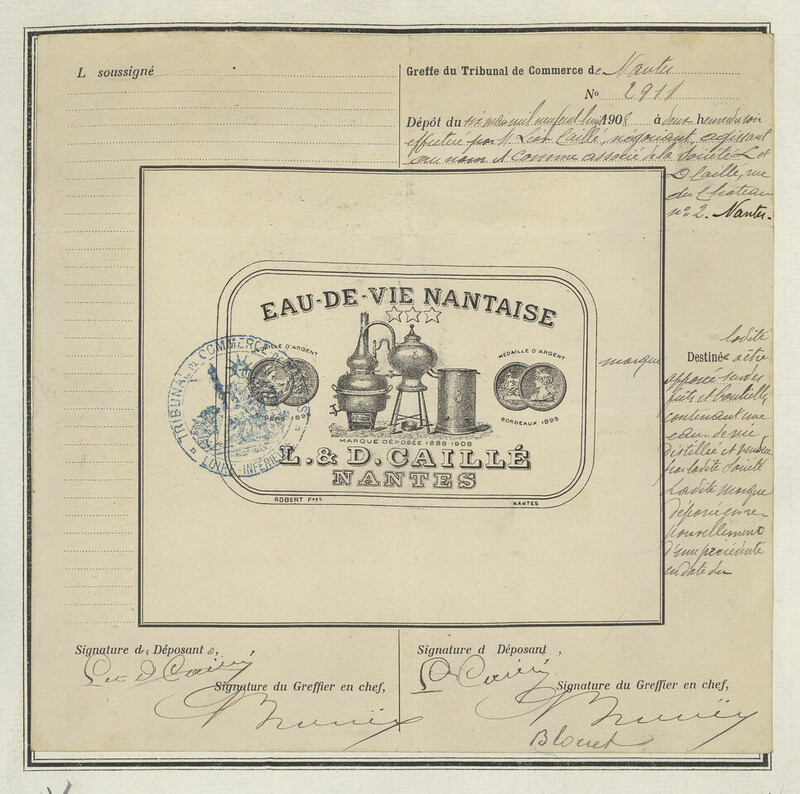 L soussigné
Greffe du Tribunal de Commerce de Nantes
No 2911
Dépôt du six mai mil neuf cent huit 1908 à deux heures du soir
effectué par M. Léon Caillé, négociant, agissant
au nom et comme associé de la Société L. et
D Caillé, rue
du Château
no 2. Nantes.
EAU-DE-VIE NANTAISE
MÉDAILLE D'ARGENT
MÉDAILLE D'ARGENT
BORDEAUX 1895
MARQUE DÉPOSÉE 1888-1908
L. & D. CAILLÉ
NANTES
ROBERT Fres
NANTES
TRIBUNAL DE COMMERCE DE NANTES
LOIRE-INFÉRIEURE
ladite
marque Destinée à être
apposée sur des
fûts et bouteilles
contenant une
eau-de-vie
distillée et vendue
par ladite Société
Ladite marque
déposée en re-
nouvellement
d'une précédente
en date du
Signature de Déposants,
L et D Caillé
Signature du Greffier en chef,
Signature d Déposant,
D Caillé
Signature du Greffier en chef,